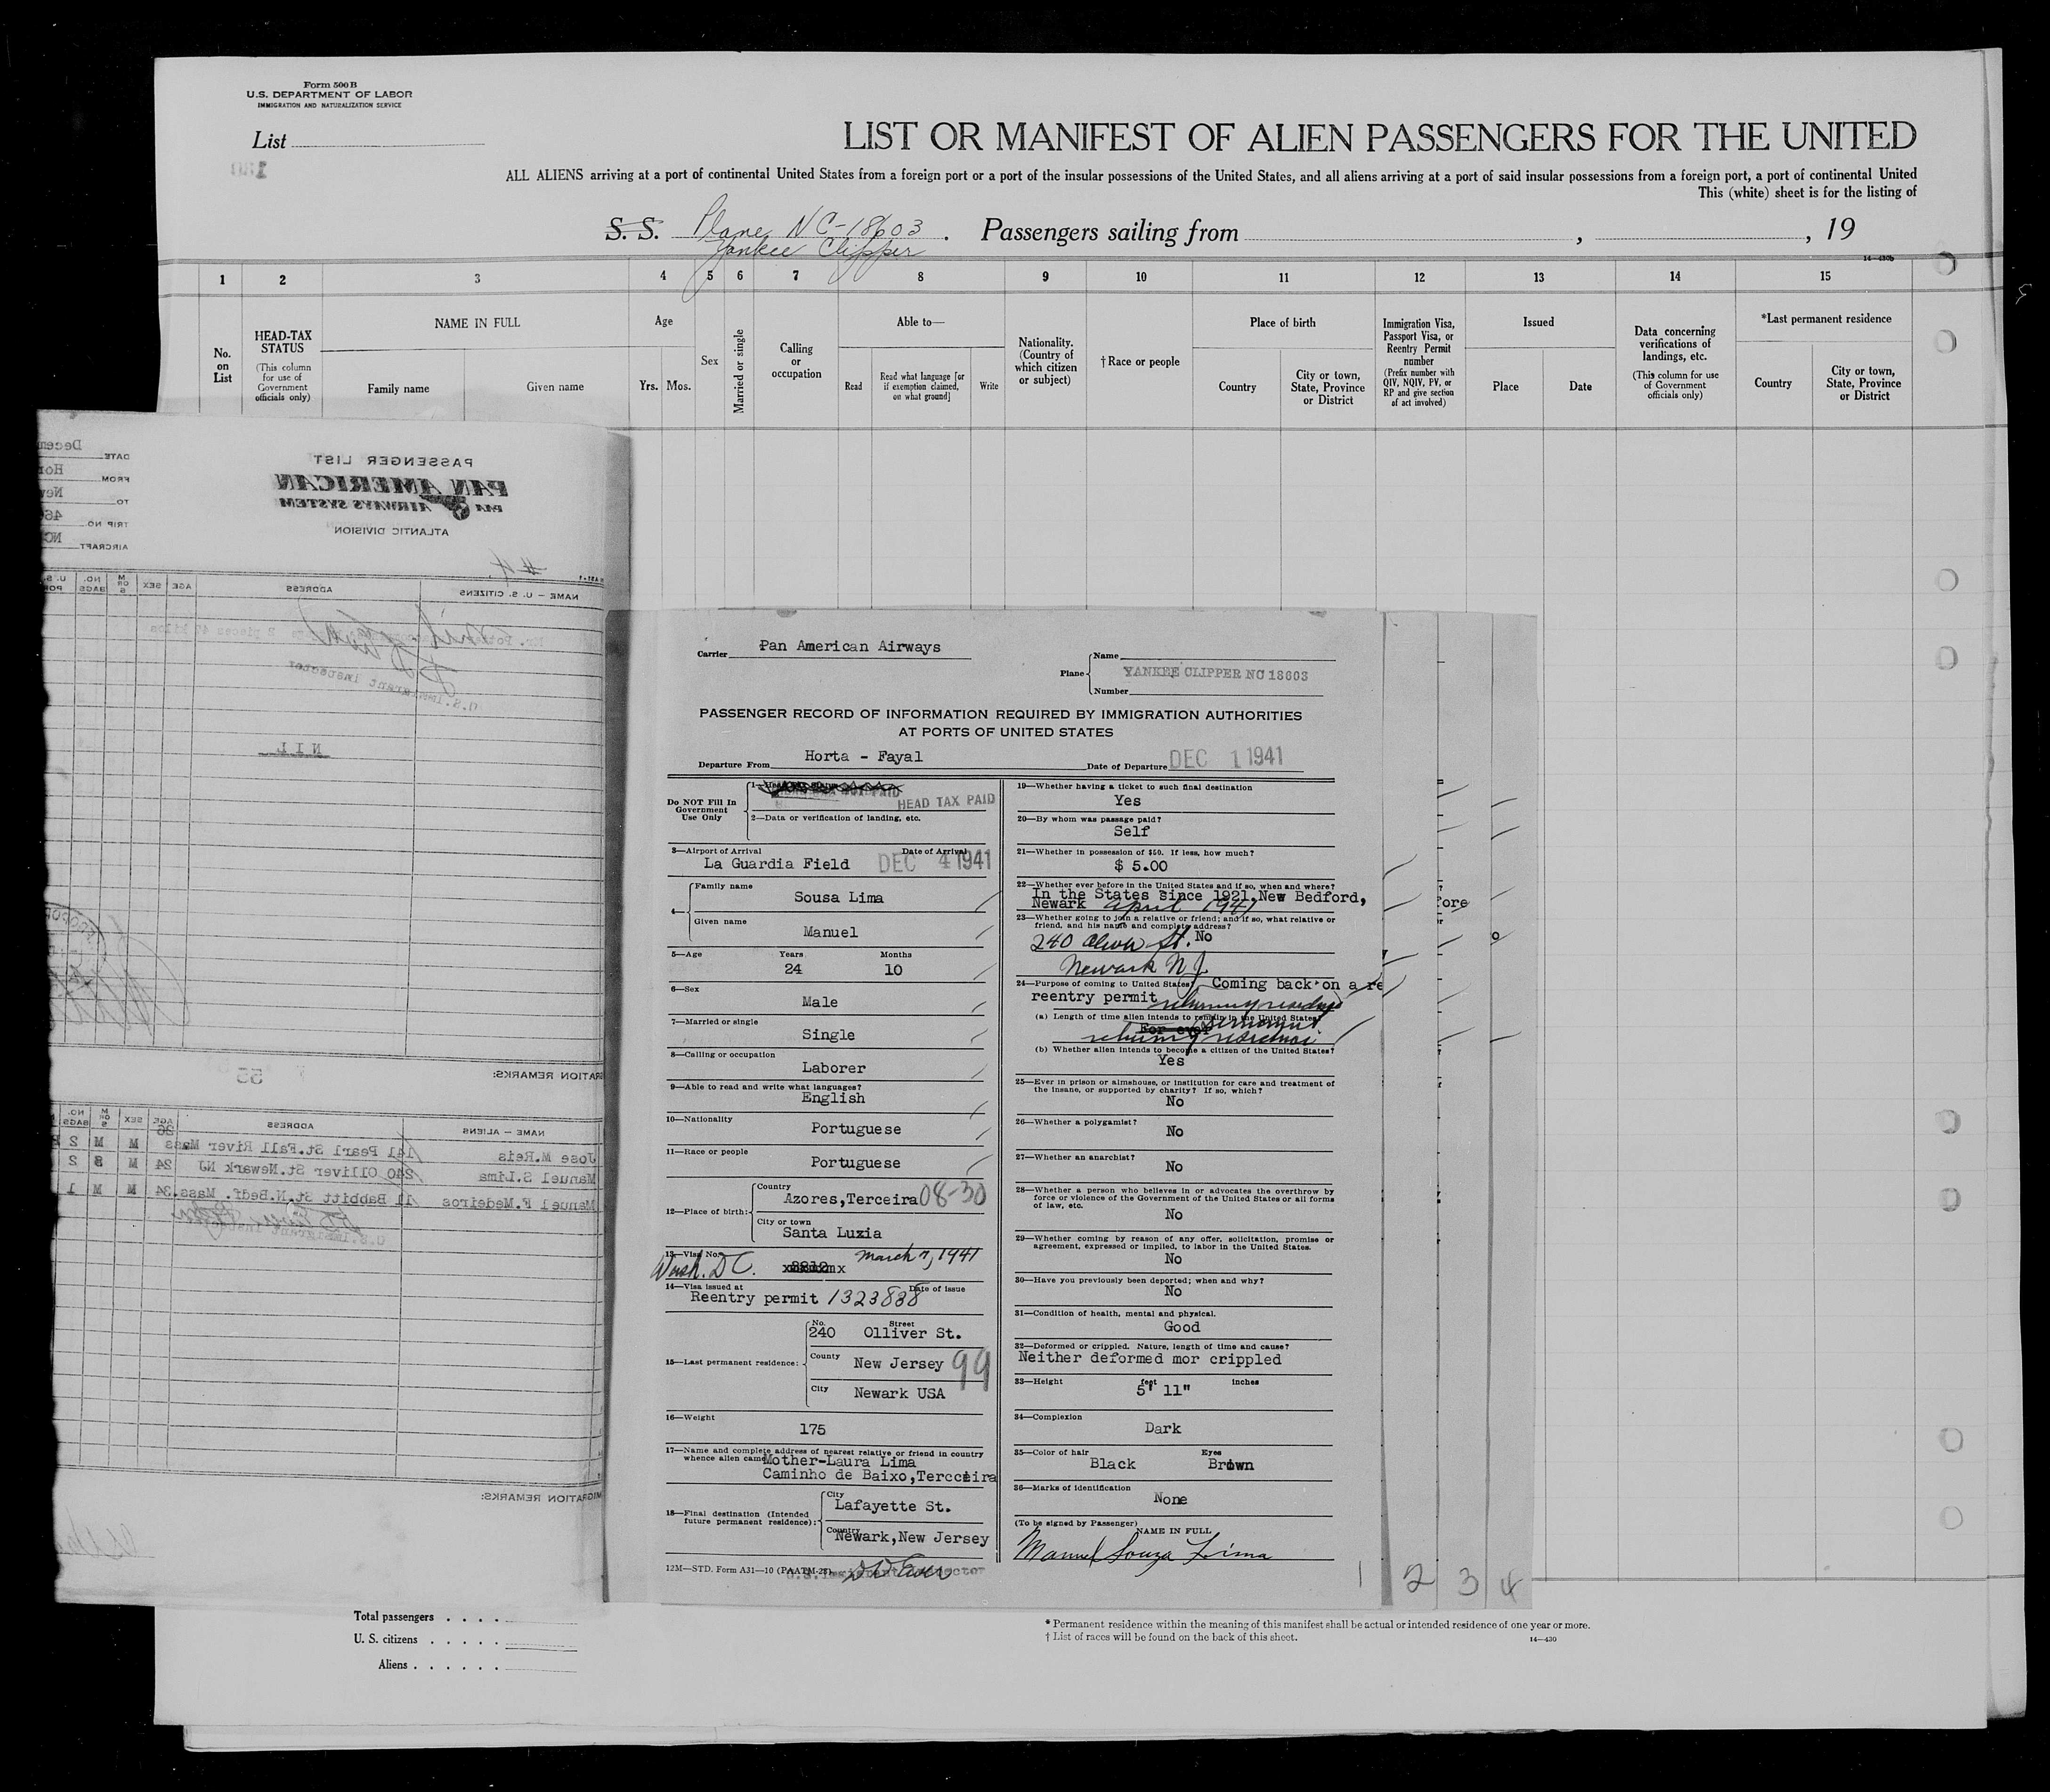 Form 500 B
U.S. DEPARTMENT OF LABOR
IMMIGRATION AND NATURALIZATION SERVICE
List
LIST OR MANIFEST OF ALIEN PASSENGERS FOR THE UNITED
ALL ALIENS arriving at a port of continental United States from a foreign port or a port of the insular possessions of the United States, and all aliens arriving at a port of said insular possessions from a foreign port, a port of continental United
This (white) sheet is for the listing of
S. S. Plane NC-18603 . Passengers sailing from , , 19
Yankee Clipper
14-430b
1 2 3 4 5 6 7 8 9 10 11 12 13 14 15
No. on List
HEAD-TAX STATUS
(This column for use of Government officials only)
NAME IN FULL
Family name
Given name
Age
Yrs. Mos.
Sex
Married or single
Calling or occupation
Able to—
Read
Read what language [or if exemption claimed, on what ground]
Write
Nationality. (Country of which citizen or subject)
† Race or people
Place of birth
Country
City or town, State, Province or District
Immigration Visa, Passport Visa, or Reentry Permit number
(Prefix number with QIV, NQIV, PV, or RP and give section of act involved)
Issued
Place
Date
Data concerning verifications of landings, etc.
(This column for use of Government officials only)
*Last permanent residence
Country
City or town, State, Province or District
PASSENGER LIST
PAN AMERICAN
PAA AIRWAYS SYSTEM
ATLANTIC DIVISION
DATE Decem
FROM Hor
TO New
TRIP NO. 46
AIRCRAFT NC
#4
NAME – U. S. CITIZENS
ADDRESS
AGE
SEX
M OR S
NO. BAGS
U. S.
U.S. Immigrant Inspector
NIL
RATION REMARKS:
55
NAME – ALIENS
ADDRESS
AGE
SEX
M OR S
NO. BAGS
Jose M.Reis 141 Pearl St.Fall River Mass 26 M M 2
Manuel S.Lima 240 Olliver St.Newark NJ 24 M S 2
Manuel F.Medeiros 11 Babbitt St.N.Bedf. Mass. 34 M M 1
IMIGRATION REMARKS:
Carrier Pan American Airways
Plane
Name
YANKEE CLIPPER NC 18603
Number
PASSENGER RECORD OF INFORMATION REQUIRED BY IMMIGRATION AUTHORITIES
AT PORTS OF UNITED STATES
Departure From Horta - Fayal Date of Departure DEC 1 1941
Do NOT Fill In
Government
Use Only
HEAD TAX PAID
2—Data or verification of landing, etc.
3—Airport of Arrival Date of Arrival
La Guardia Field DEC 4 1941
4—
Family name
Sousa Lima
Given name
Manuel
5—Age Years Months
24 10
6—Sex
Male
7—Married or single
Single
8—Calling or occupation
Laborer
9—Able to read and write what languages?
English
10—Nationality
Portuguese
11—Race or people
Portuguese
12—Place of birth:
Country
Azores,Terceira 08-30
City or town
Santa Luzia
13—Visa No.
Wash. D C. March 7, 1941
14—Visa issued at Date of issue
Reentry permit 1323838
15—Last permanent residence:
No. Street
240 Olliver St.
County
New Jersey 99
City
Newark USA
16—Weight
175
17—Name and complete address of nearest relative or friend in country
whence alien came
Mother-Laura Lima
Caminho de Baixo,Terceira
18—Final destination (Intended
future permanent residence):
City
Lafayette St.
Country
Newark,New Jersey
12M—STD. Form A31—10 (PAATM-28)
19—Whether having a ticket to such final destination
Yes
20—By whom was passage paid?
Self
21—Whether in possession of $50. If less, how much?
$ 5.00
22—Whether ever before in the United States and if so, when and where?
In the States since 1921,New Bedford,
Newark April 1941
23—Whether going to join a relative or friend; and if so, what relative or
friend, and his name and complete address?
No
240 Oliver St.
Newark N J
24—Purpose of coming to United States? Coming back on a re
reentry permit returning residence
(a) Length of time alien intends to remain in the United States?
For ever permanent
returning residence
(b) Whether alien intends to become a citizen of the United States?
Yes
25—Ever in prison or almshouse, or institution for care and treatment of
the insane, or supported by charity? If so, which?
No
26—Whether a polygamist?
No
27—Whether an anarchist?
No
28—Whether a person who believes in or advocates the overthrow by
force or violence of the Government of the United States or all forms
of law, etc.
No
29—Whether coming by reason of any offer, solicitation, promise or
agreement, expressed or implied, to labor in the United States.
No
30—Have you previously been deported; when and why?
No
31—Condition of health, mental and physical.
Good
32—Deformed or crippled. Nature, length of time and cause?
Neither deformed mor crippled
33—Height feet inches
5' 11"
34—Complexion
Dark
35—Color of hair Eyes
Black Brown
36—Marks of identification
None
(To be signed by Passenger)
NAME IN FULL
Manuel Souza Lima
ore
1 2 3 4
Total passengers . . . .
U. S. citizens . . . . .
Aliens . . . . . .
* Permanent residence within the meaning of this manifest shall be actual or intended residence of one year or more.
† List of races will be found on the back of this sheet.
14—430